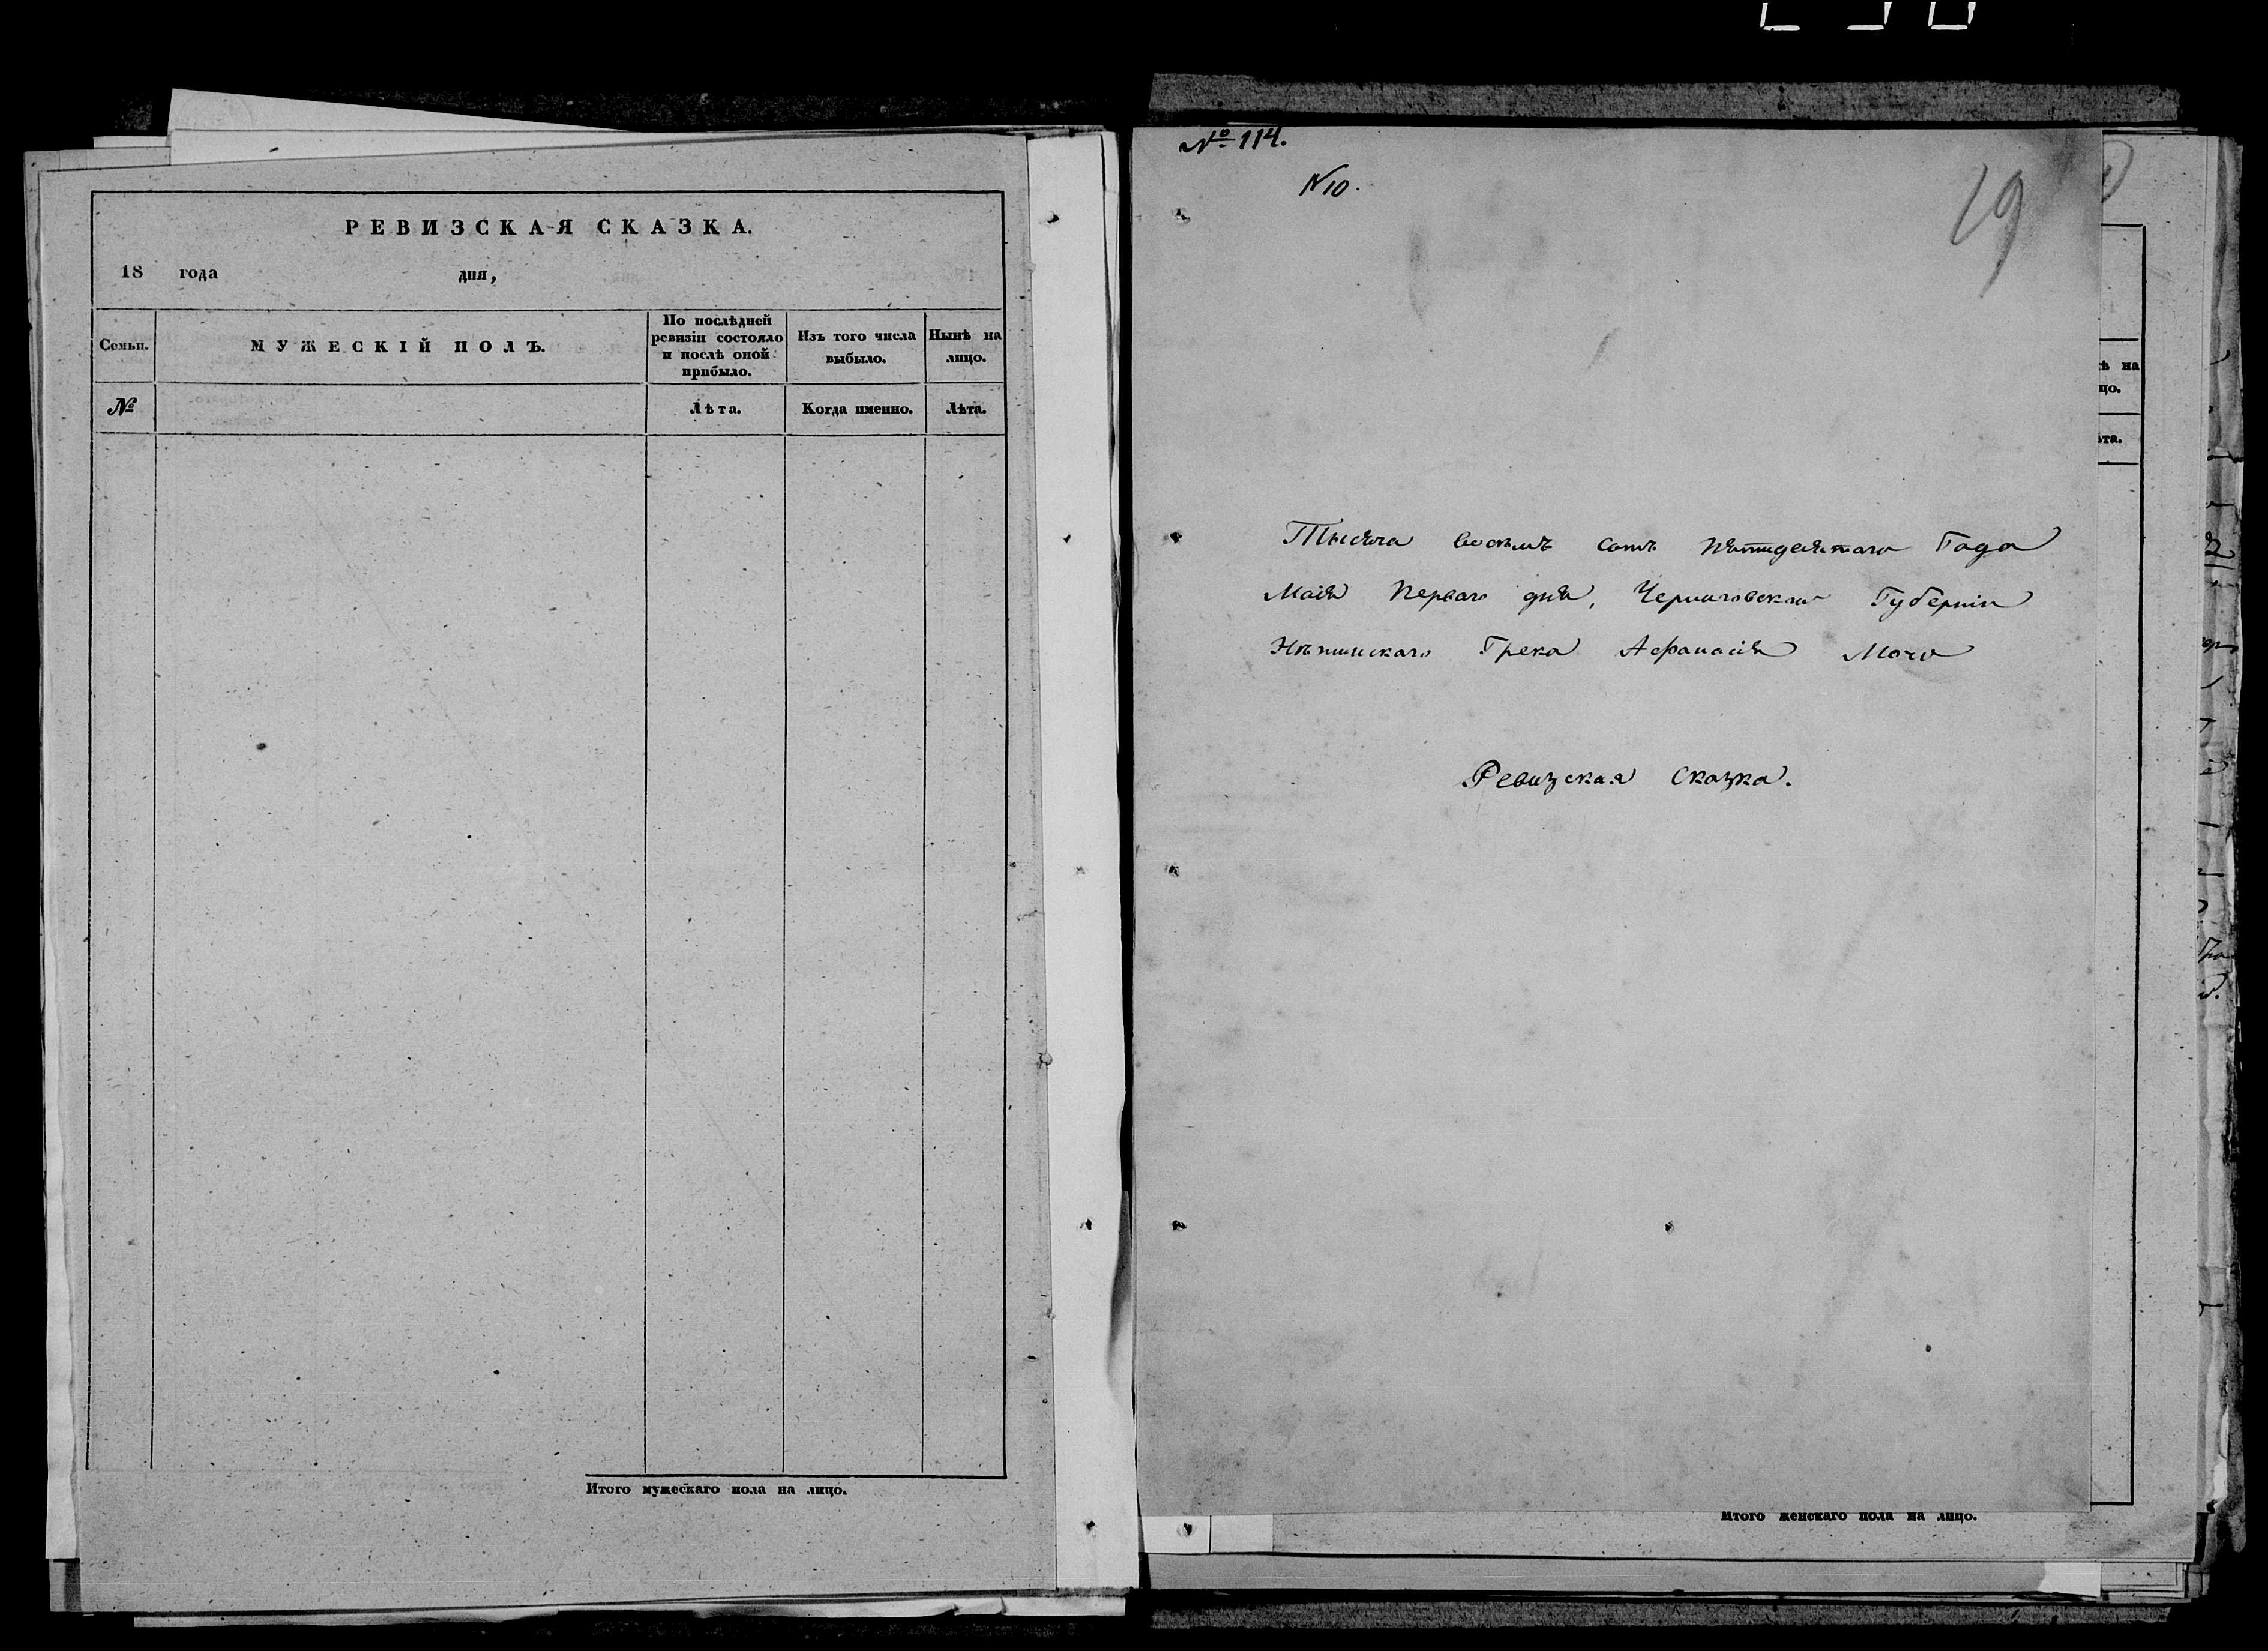 РЕВИЗСКАЯ СКАЗКА.
18 года дня,
Семьи. МУЖЕСКІЙ ПОЛЪ. По послѣдней ревизіи состояло и послѣ оной прибыло. Изъ того числа выбыло. Нынѣ на лицо.
№ Лѣта. Когда именно. Лѣта.
Итого мужескаго пола на лицо.
№ 114.
N 10.
19
Тысяча восемъ сотъ пятидесятаго Года
Маія Перваго дня, Черниговской Губерніи
Нѣжинскаго Грека Афанасія
Ревизская Сказка.
ѣ на
цо.
ѣта.
Итого женскаго пола на лицо.